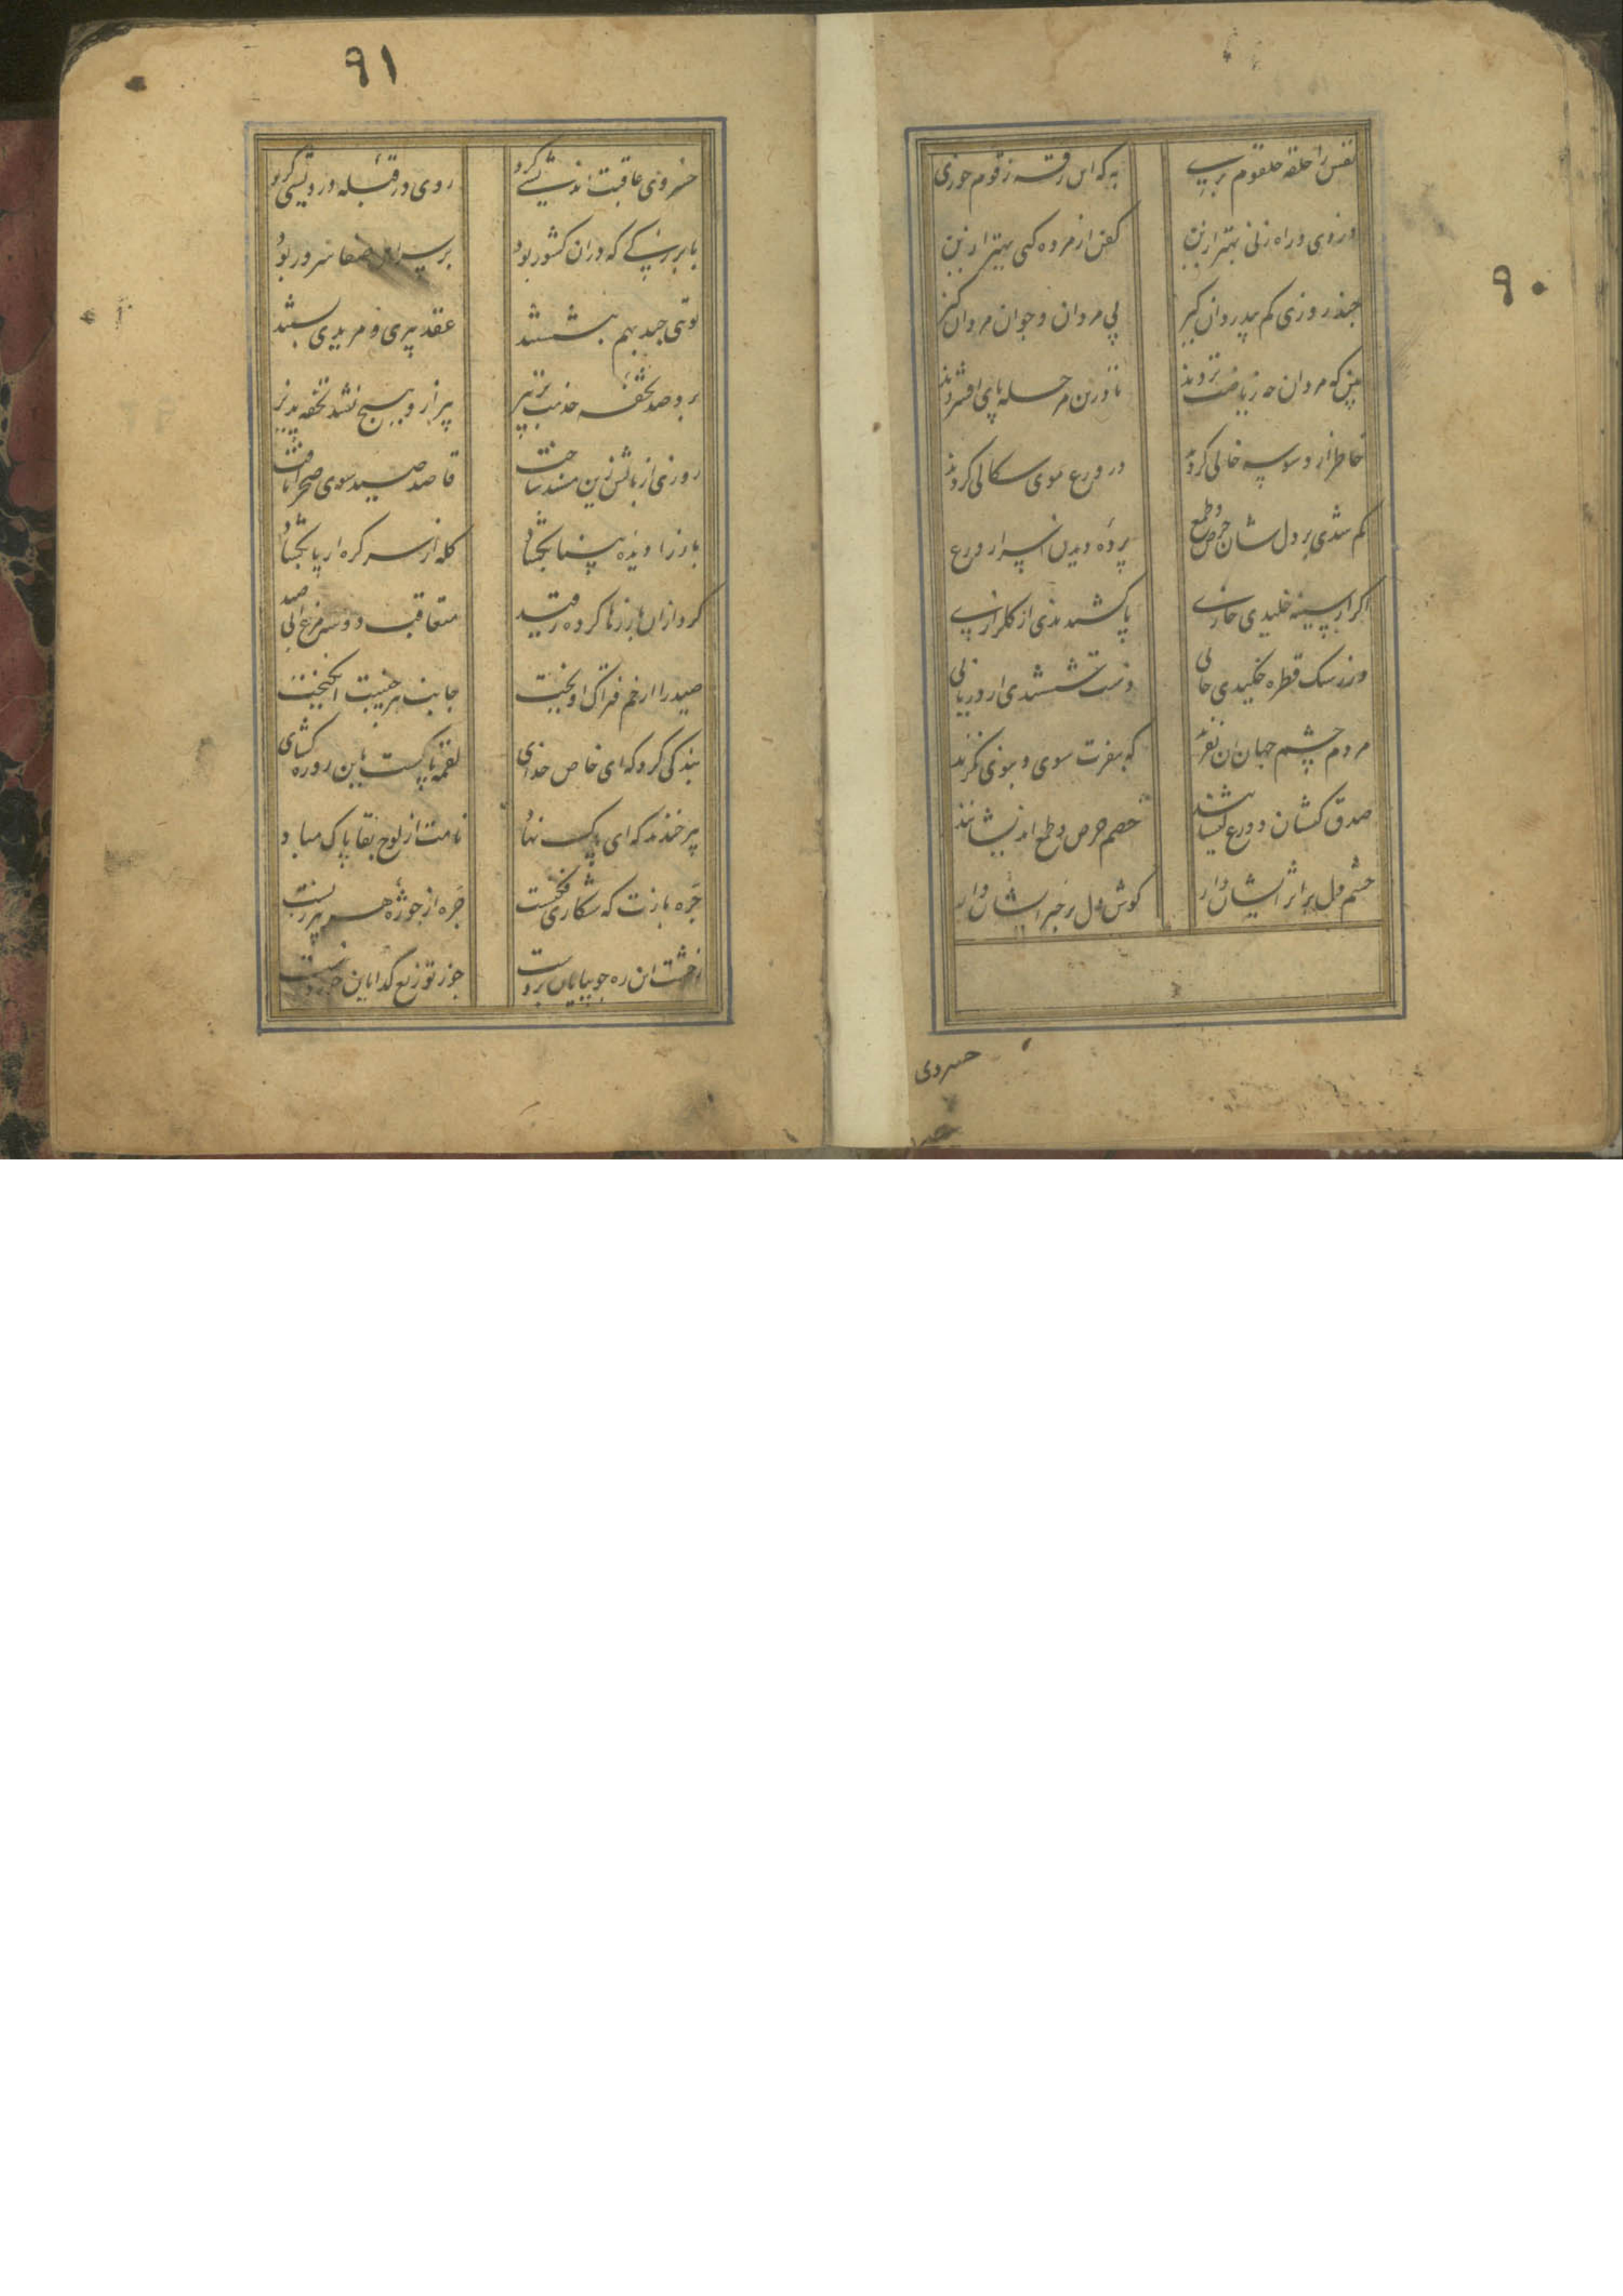 ۹۰
نفس را حلقه حلقوم بری به که این رقمه زقوم خوری
دزدی و راه زنی بهتر ازین کفن از مرده کنی بهتر ازین
چند روزی کم بیدردان گیر پی مردان و جوان مردان گیر
بین که مردان چه ریاضت بردند تا درین مرحله پای افشردند
خاطر از وسوسه خالی کردند در ورع موی سکالی کردند
کم شدی بر دل شان حرص و طمع پرده دیدن اسرار ورع
اگر از سینه خلیدی خاری پا کشیدندی از گلزاری
ور ز سنگ قطره چکیدی حالی دست شستندی از دریا لی
مردم چشم جهان آن نفرند که بعزت سوی دنیوی نگرند
صدق کیشان و ورع کیشانند خصم حرص و طمع اندیشانند
چشم دل بر اثر ایشان دار گوش دل بر خبر ایشان دار
خسروی
۹۱
خسروی عاقبت اندیشی کرد روی در قبله درویشی کرد
با بزرگی که در آن کشور بود بر سر اهل صفا سرور بود
نوبتی چند بهم بنشستند عقد پیری و مریدی بستند
برد صد تحفه خدمت بر پیر پیر از و هیچ نشد تحفه پذیر
روزی از بالش زین مسند ساخت قاصد صید سوی صحرا تافت
باز را دیده بینا بگشاد کله از سر گره از پا بگشاد
کرد ازان بازرها کرده ز قید متعاقب دو سه مرغابی صید
صید را از خم فتراک آویخت جانب پیر جنیبت انگیخت
بندگی کرد که ای خاص خدای لقمه پاکست باین روزه گشای
پیر خندید که ای پاک نهاد نامت از لوح بقا پاک مباد
جره بازت که شکاری فکنست جره از جوژه هر پیر زنست
زحشت این ره چو بپایان بردست جوز توزیع گدایان خوردست